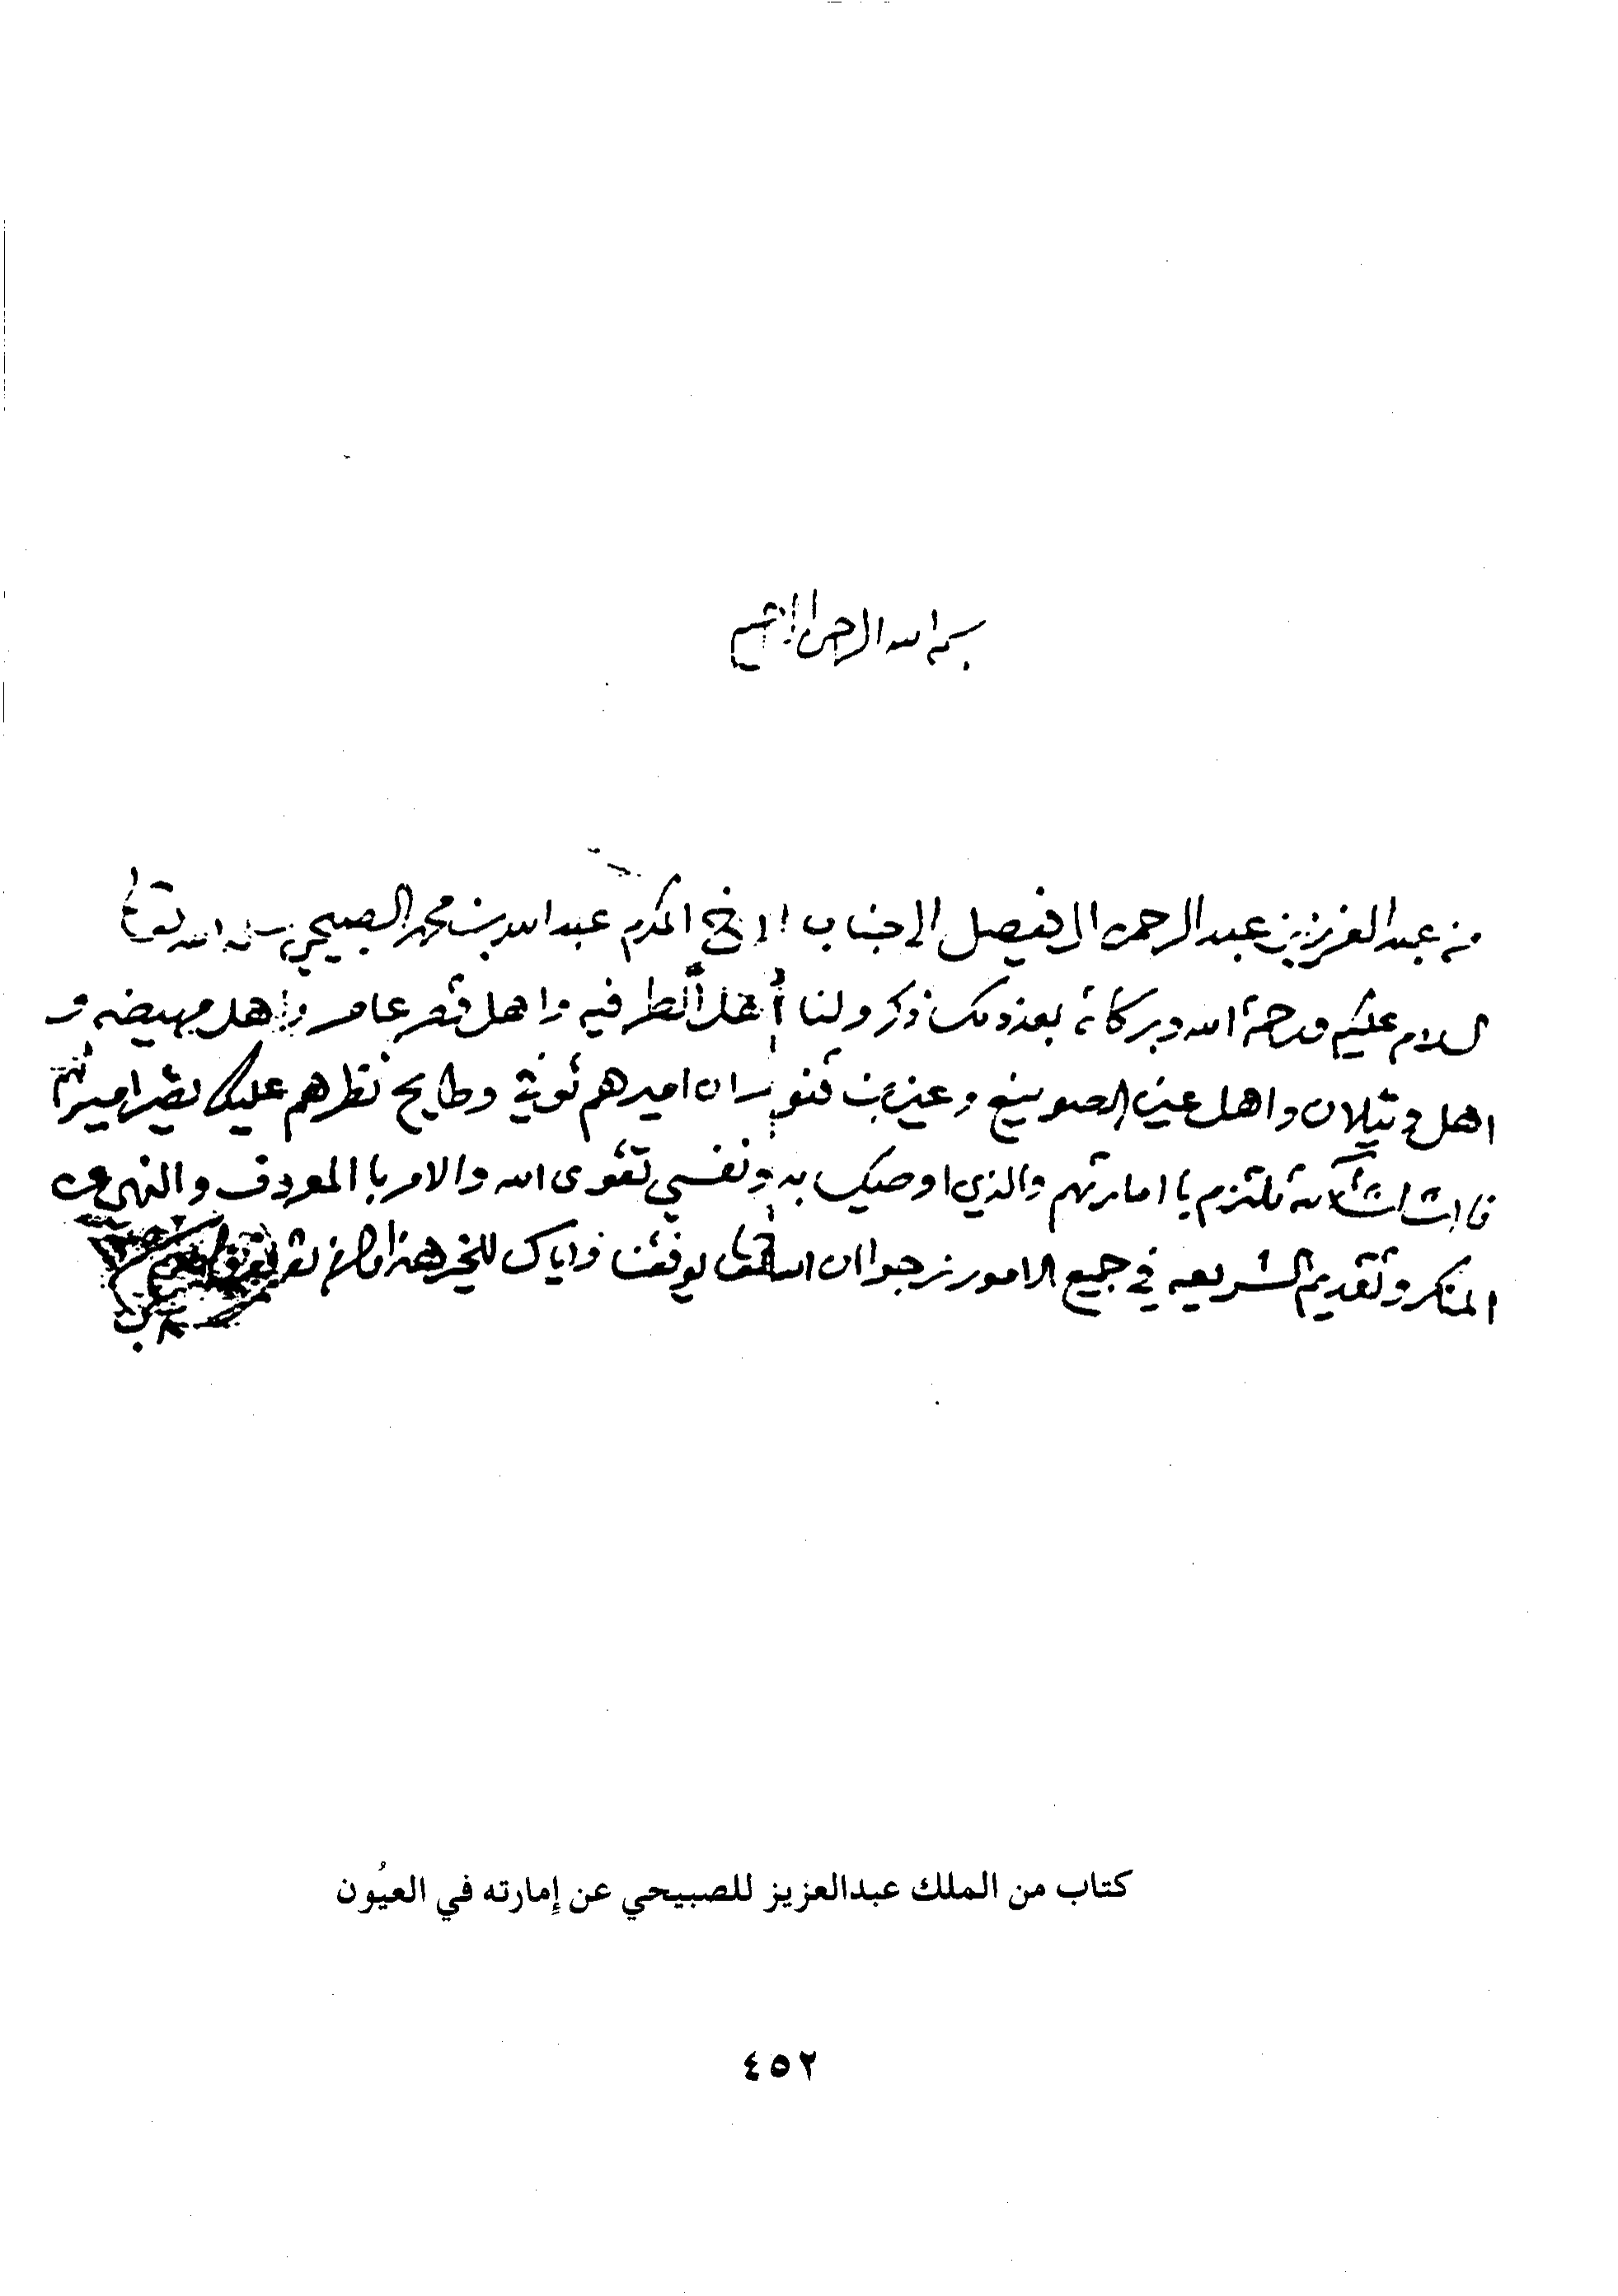 بسم الله الرحمن الرحيم
من عبدالعزيز بن عبدالرحمن ال فيصل الى جناب الاخ المكرم عبدالله بن محمد الصبيحي سلمه الله تعالى
السلام عليكم ورحمة الله وبركاته بعد ذلك ذكرو لنا أهل الطرفيه واهل قصر عامر واهل مهيضه و
اهل وثيلان واهل عين الصوينع وعين بن قنور ان اميرهم توفي وطايح نظرهم عليك تصير اميرلهم
فانت انشالله تلتزم باامارتهم والذي اوصيك به ونفسي تقوى الله والامر باالمعروف والنهي عن
المنكر وتقديم الشريعه في جميع الامور نرجوا ان الله يوفقنا واياك للخير هذا مالزم تعريفه
كتاب من الملك عبدالعزيز للصبيحي عن إمارته في العيُون
٤٥٢